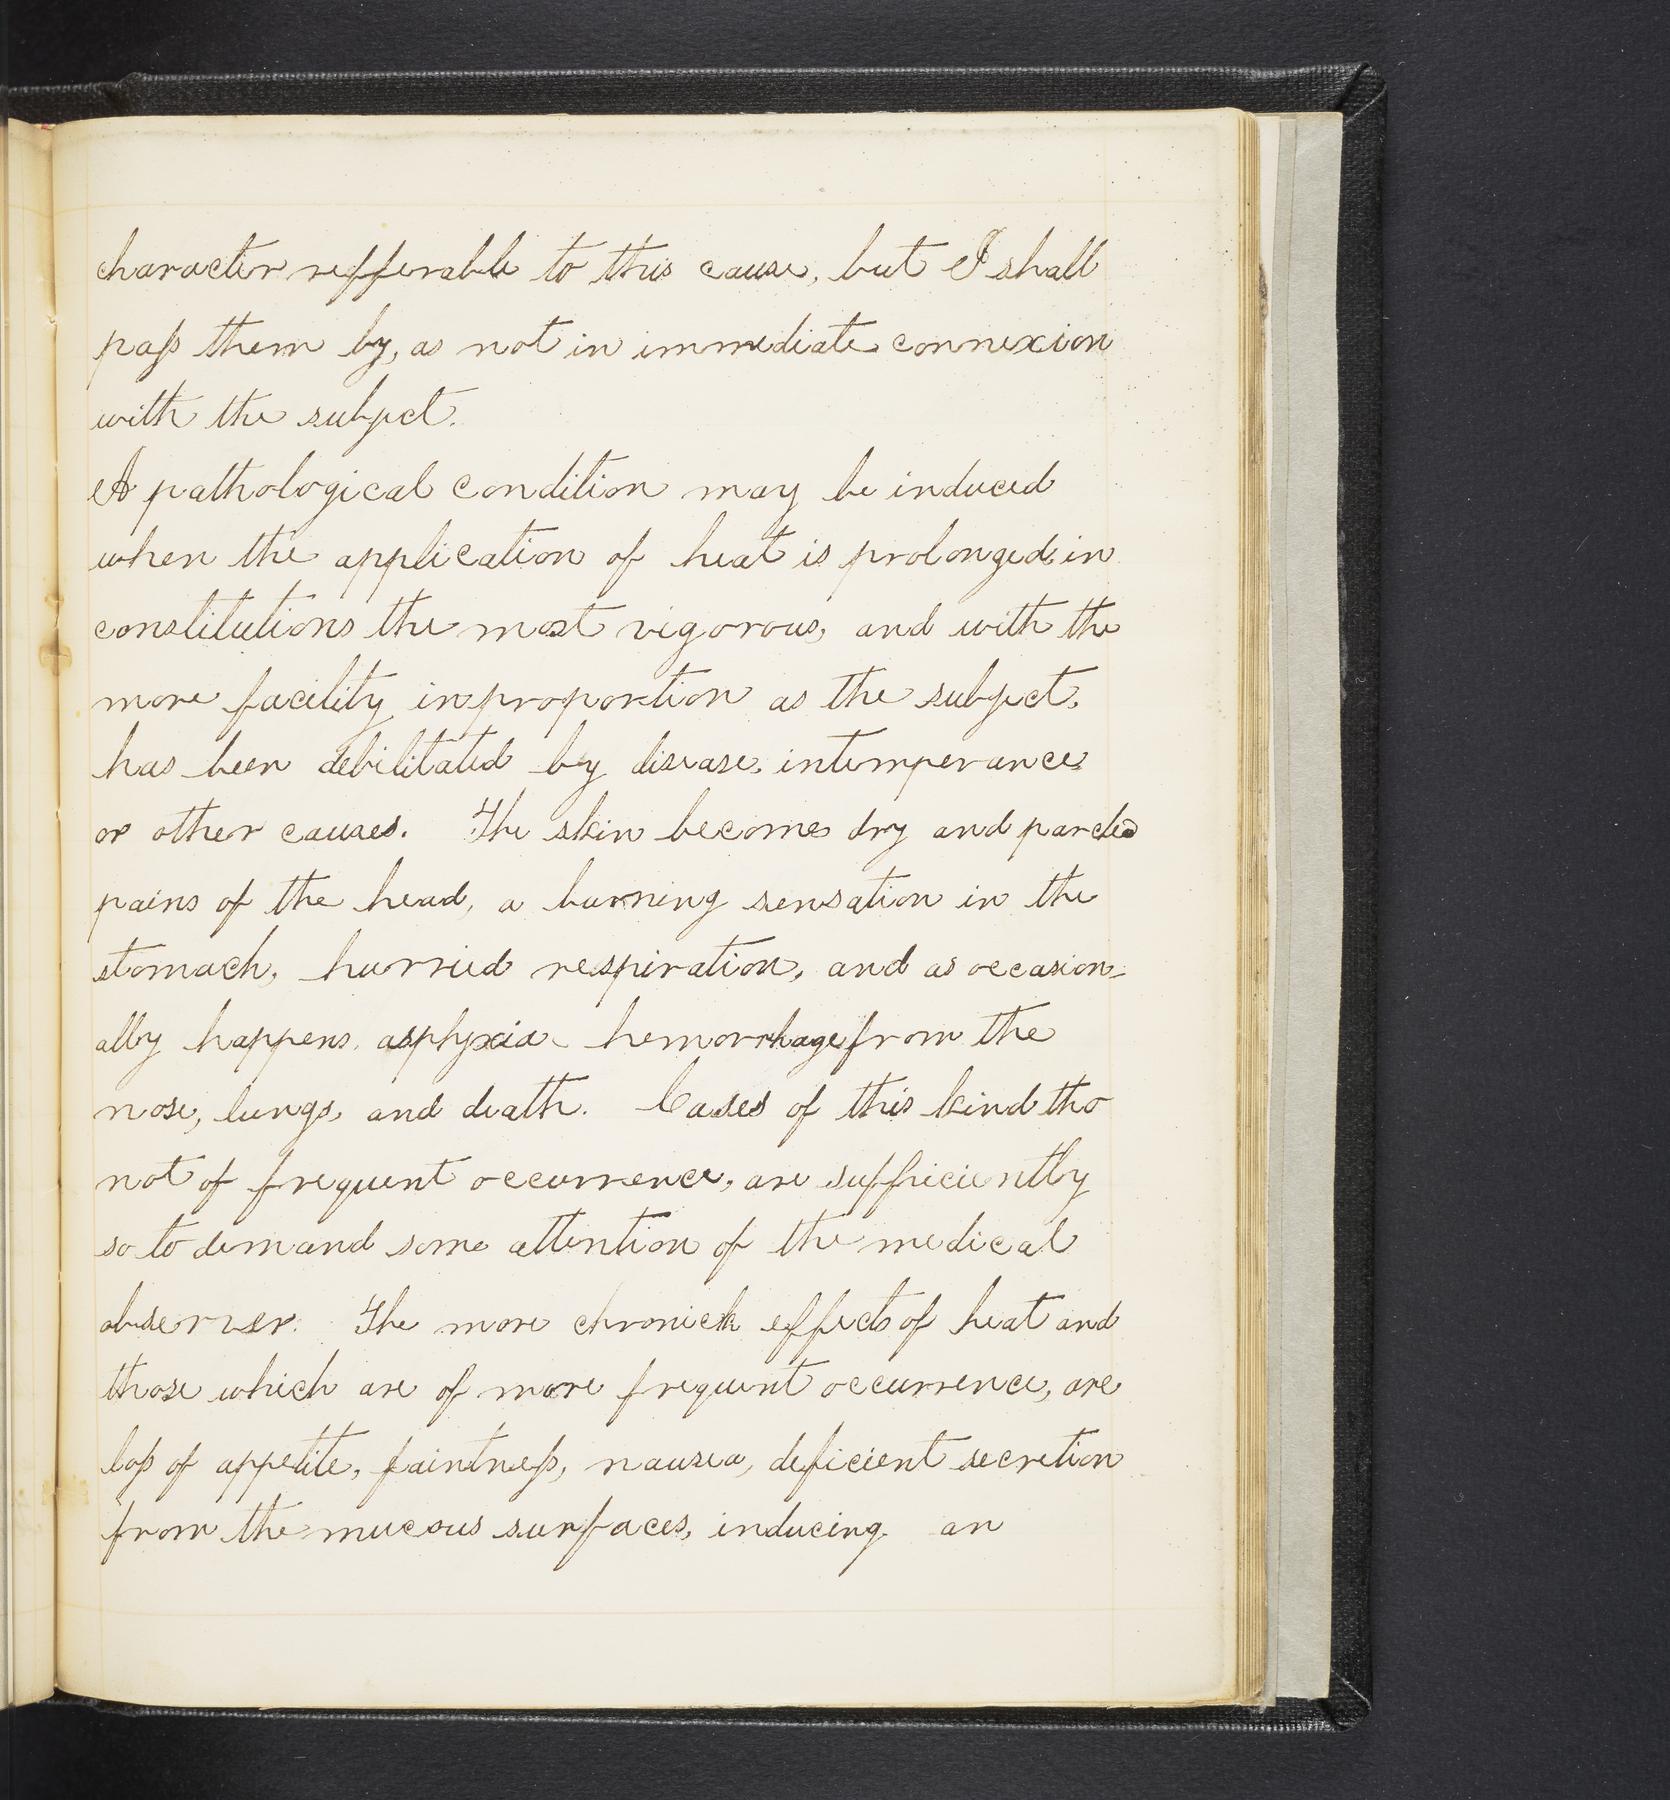 character refferable to this cause, but I shall
paſs them by, as not in immediate connexion
with the subject.
A pathological condition may be induced
when the application of heat is prolonged, in
constitutions the most vigorous, and with the
more facility in proportion as the subject,
has been debilitated by disease, intemperance
or other causes. The skin becomes dry and parched
pains of the head, a burning sensation in the
stomach, hurried respiration, and as occasion-
ally happens, asphyxia, hemorrhage from the
nose, lungs, and death. Cases of this kind tho
not of frequent occurrence, are sufficiently
so to demand some attention of the medical
observer. The more chronick effects of heat and
those which are of more frequent occurrence, are
loſs of appetite, faintneſs, nausea, deficient secretion
from the mucous surfaces, inducing an